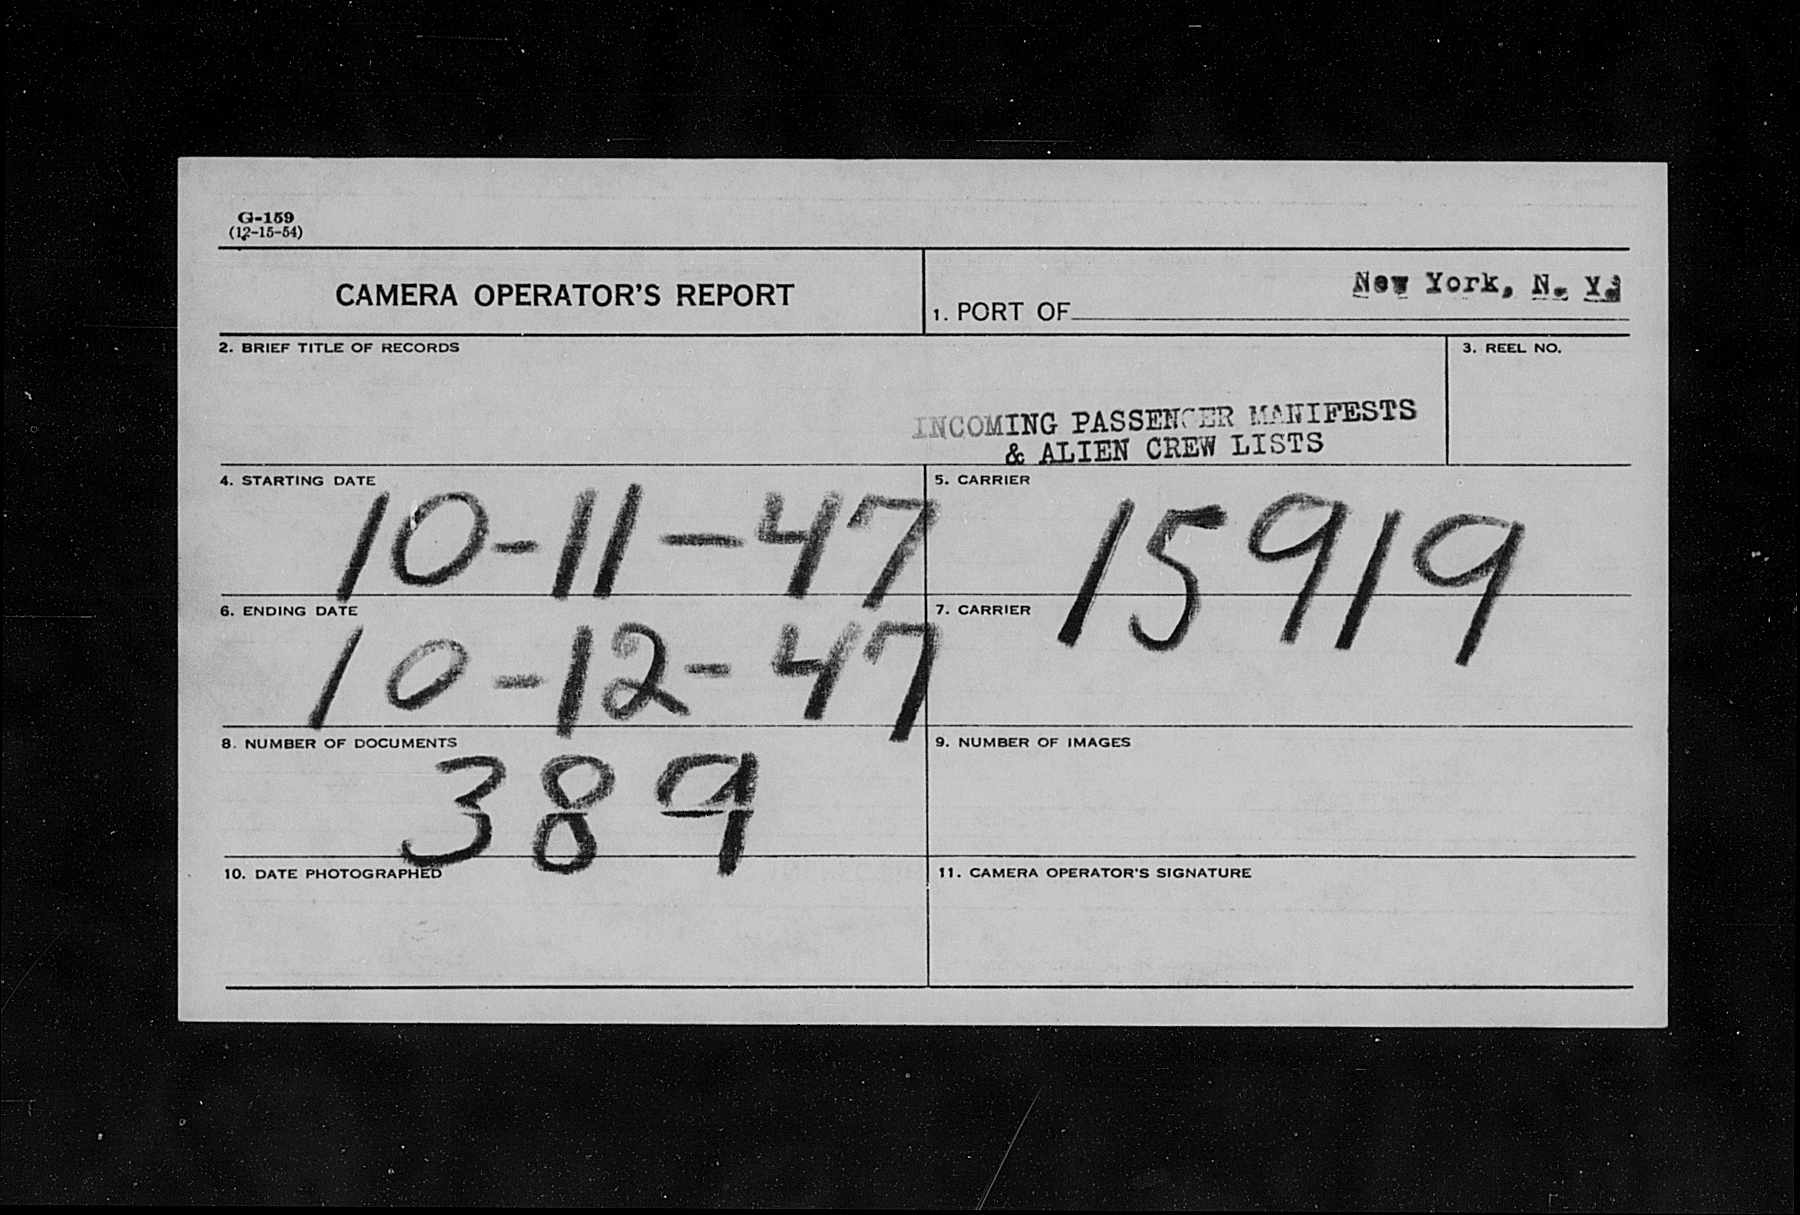 G-159
(12-15-54)
CAMERA OPERATOR'S REPORT
1. PORT OF New York, N. Y.
2. BRIEF TITLE OF RECORDS
INCOMING PASSENGER MANIFESTS
& ALIEN CREW LISTS
3. REEL NO.
4. STARTING DATE
10-11-47
5. CARRIER
15919
6. ENDING DATE
10-12-47
7. CARRIER
8. NUMBER OF DOCUMENTS
389
9. NUMBER OF IMAGES
10. DATE PHOTOGRAPHED
11. CAMERA OPERATOR'S SIGNATURE